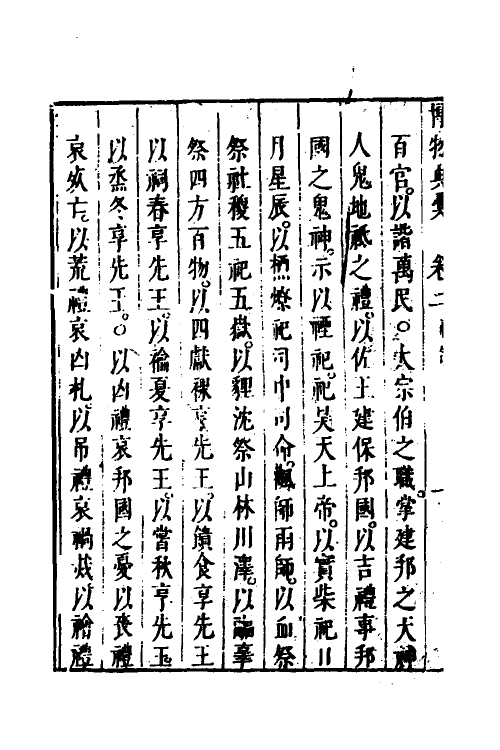 博物典彙 卷二 一
百官以諧萬民○大宗伯之職掌建邦之天神
人鬼地祗之禮以佐王建保邦國以吉禮事邦
國之鬼神示以禋祀祀昊天上帝以實柴祀日
月星辰以槱燎祀司中司命飌師雨師以血祭
祭社稷五祀五嶽以貍沈祭山林川澤以疈辜
祭四方百物以四獻祼享先王以饋食享先王
以祠春享先王以禴夏享先王以嘗秋享先王
以烝冬享先王○以凶禮哀邦國之憂以喪禮
哀死亡以荒禮哀凶札以吊禮哀禍烖以禬禮